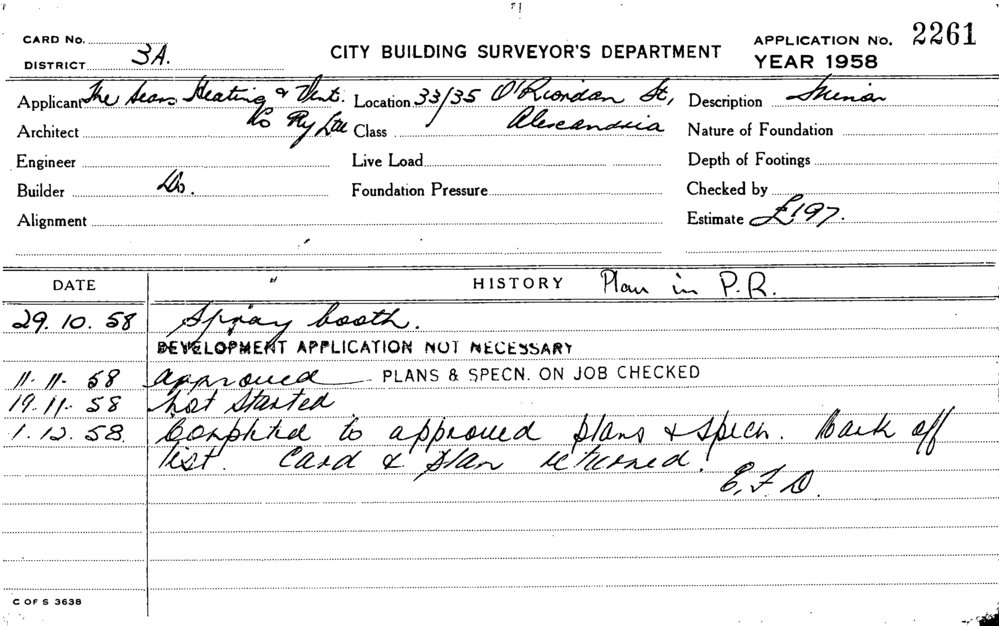 CARD No. APPLICATION No. 2261
DISTRICT 3A. CITY BUILDING SURVEYOR'S DEPARTMENT YEAR 1958
Applicant The Sears Heating & Vent. Location 33/35 O'Riordan St, Description Minor
Architect Co Pty Ltd Class Alexandria Nature of Foundation
Engineer Live Load Depth of Footings
Builder Do. Foundation Pressure Checked by
Alignment Estimate £197.
DATE HISTORY Plan in P.R.
29.10.58 Spray booth.
DEVELOPMENT APPLICATION NOT NECESSARY
11.11.58 approved PLANS & SPECN. ON JOB CHECKED
19.11.58 not started
1.12.58. Completed to approved plans & specn. Mark off
list. Card & plan returned.
E.F.D.
C OF S 3638